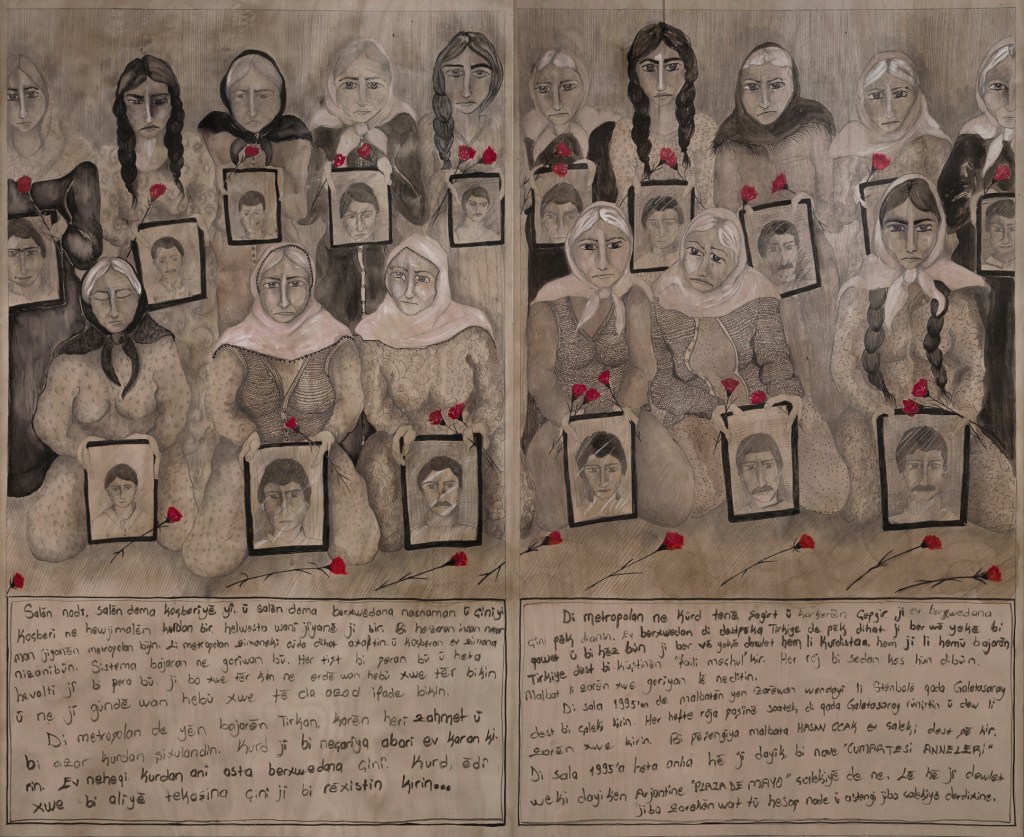 Salên nodî, salên dema koçberiyê yî. û salên dema berxwedana nasnaman û Çiniyî
Koçberî ne hewjimolên kurdan bir. helwesta wani jiyanê ji bir. Bi hezaran
man jiyanên metropolan bijîn. Li metropolan zimaneki cûda dihat axaftin. û koçberan ev zimana
nizanibûn. Sistema bajaran ne goriwan bû. Her tişt bi peran bû û heta
hevaltî jî bi pera bû. ji bo xwe têr kin ne erdê wan hebû xwe têr bikin
û ne jî gundê wan hebû xwe tê da azad ifade bikin.
Di metropolan de yên bajarên Tirkan, karên herî zahmet û
bi azar kurdan pîxulandin. Kurd ji bi neçariya aborî ev karan ki-
rin. Ev neheqî kurdan anî asta berxwedana Çinî. Kurd, êdî
xwe bi aliyê tekoşîna çinî ji bi rêxistin kirin...
Di metropolan ne Kurd tenê şagirt û karkerên Çepgir ji ev berxwedana
çini pêk danîn. Ev berxwedan di destpêka Tirkiye de pêk dihat ji ber wê yekê bi
qewet û bi hêz bûn ji ber vê yekê dewlet hem li Kurdistan, hem ji li hemû bajarên
Tirkiye dest bi kuştinên "faili mechul" kir. Her roj bi sedan kes hun dibûn.
Malbat li zarên xwe geriyan lê neditin.
Di sala 1995'an de malbatên yên zarêwan wendayî li Stenbolê qada Galatasaray
dest bi çalekî kirin. Her hefte roja paşînê saetek di qada Galatasaray rûniştin û dew li
zarên xwe kirin. Bi pêşengiya malbata HASAN OCAK ev çalekî dest pê kir.
Di sala 1995'a heta anha hê jî dayik bi nave "CUMARTESİ ANNELERİ"
weki dayiken Arjantine "PLAZA DE MAYO" çalekiyê de ne. Lê hê ji dewlet
jibo zarokên wat tû hesap node û astengi jibo çalekiyê derdixine.